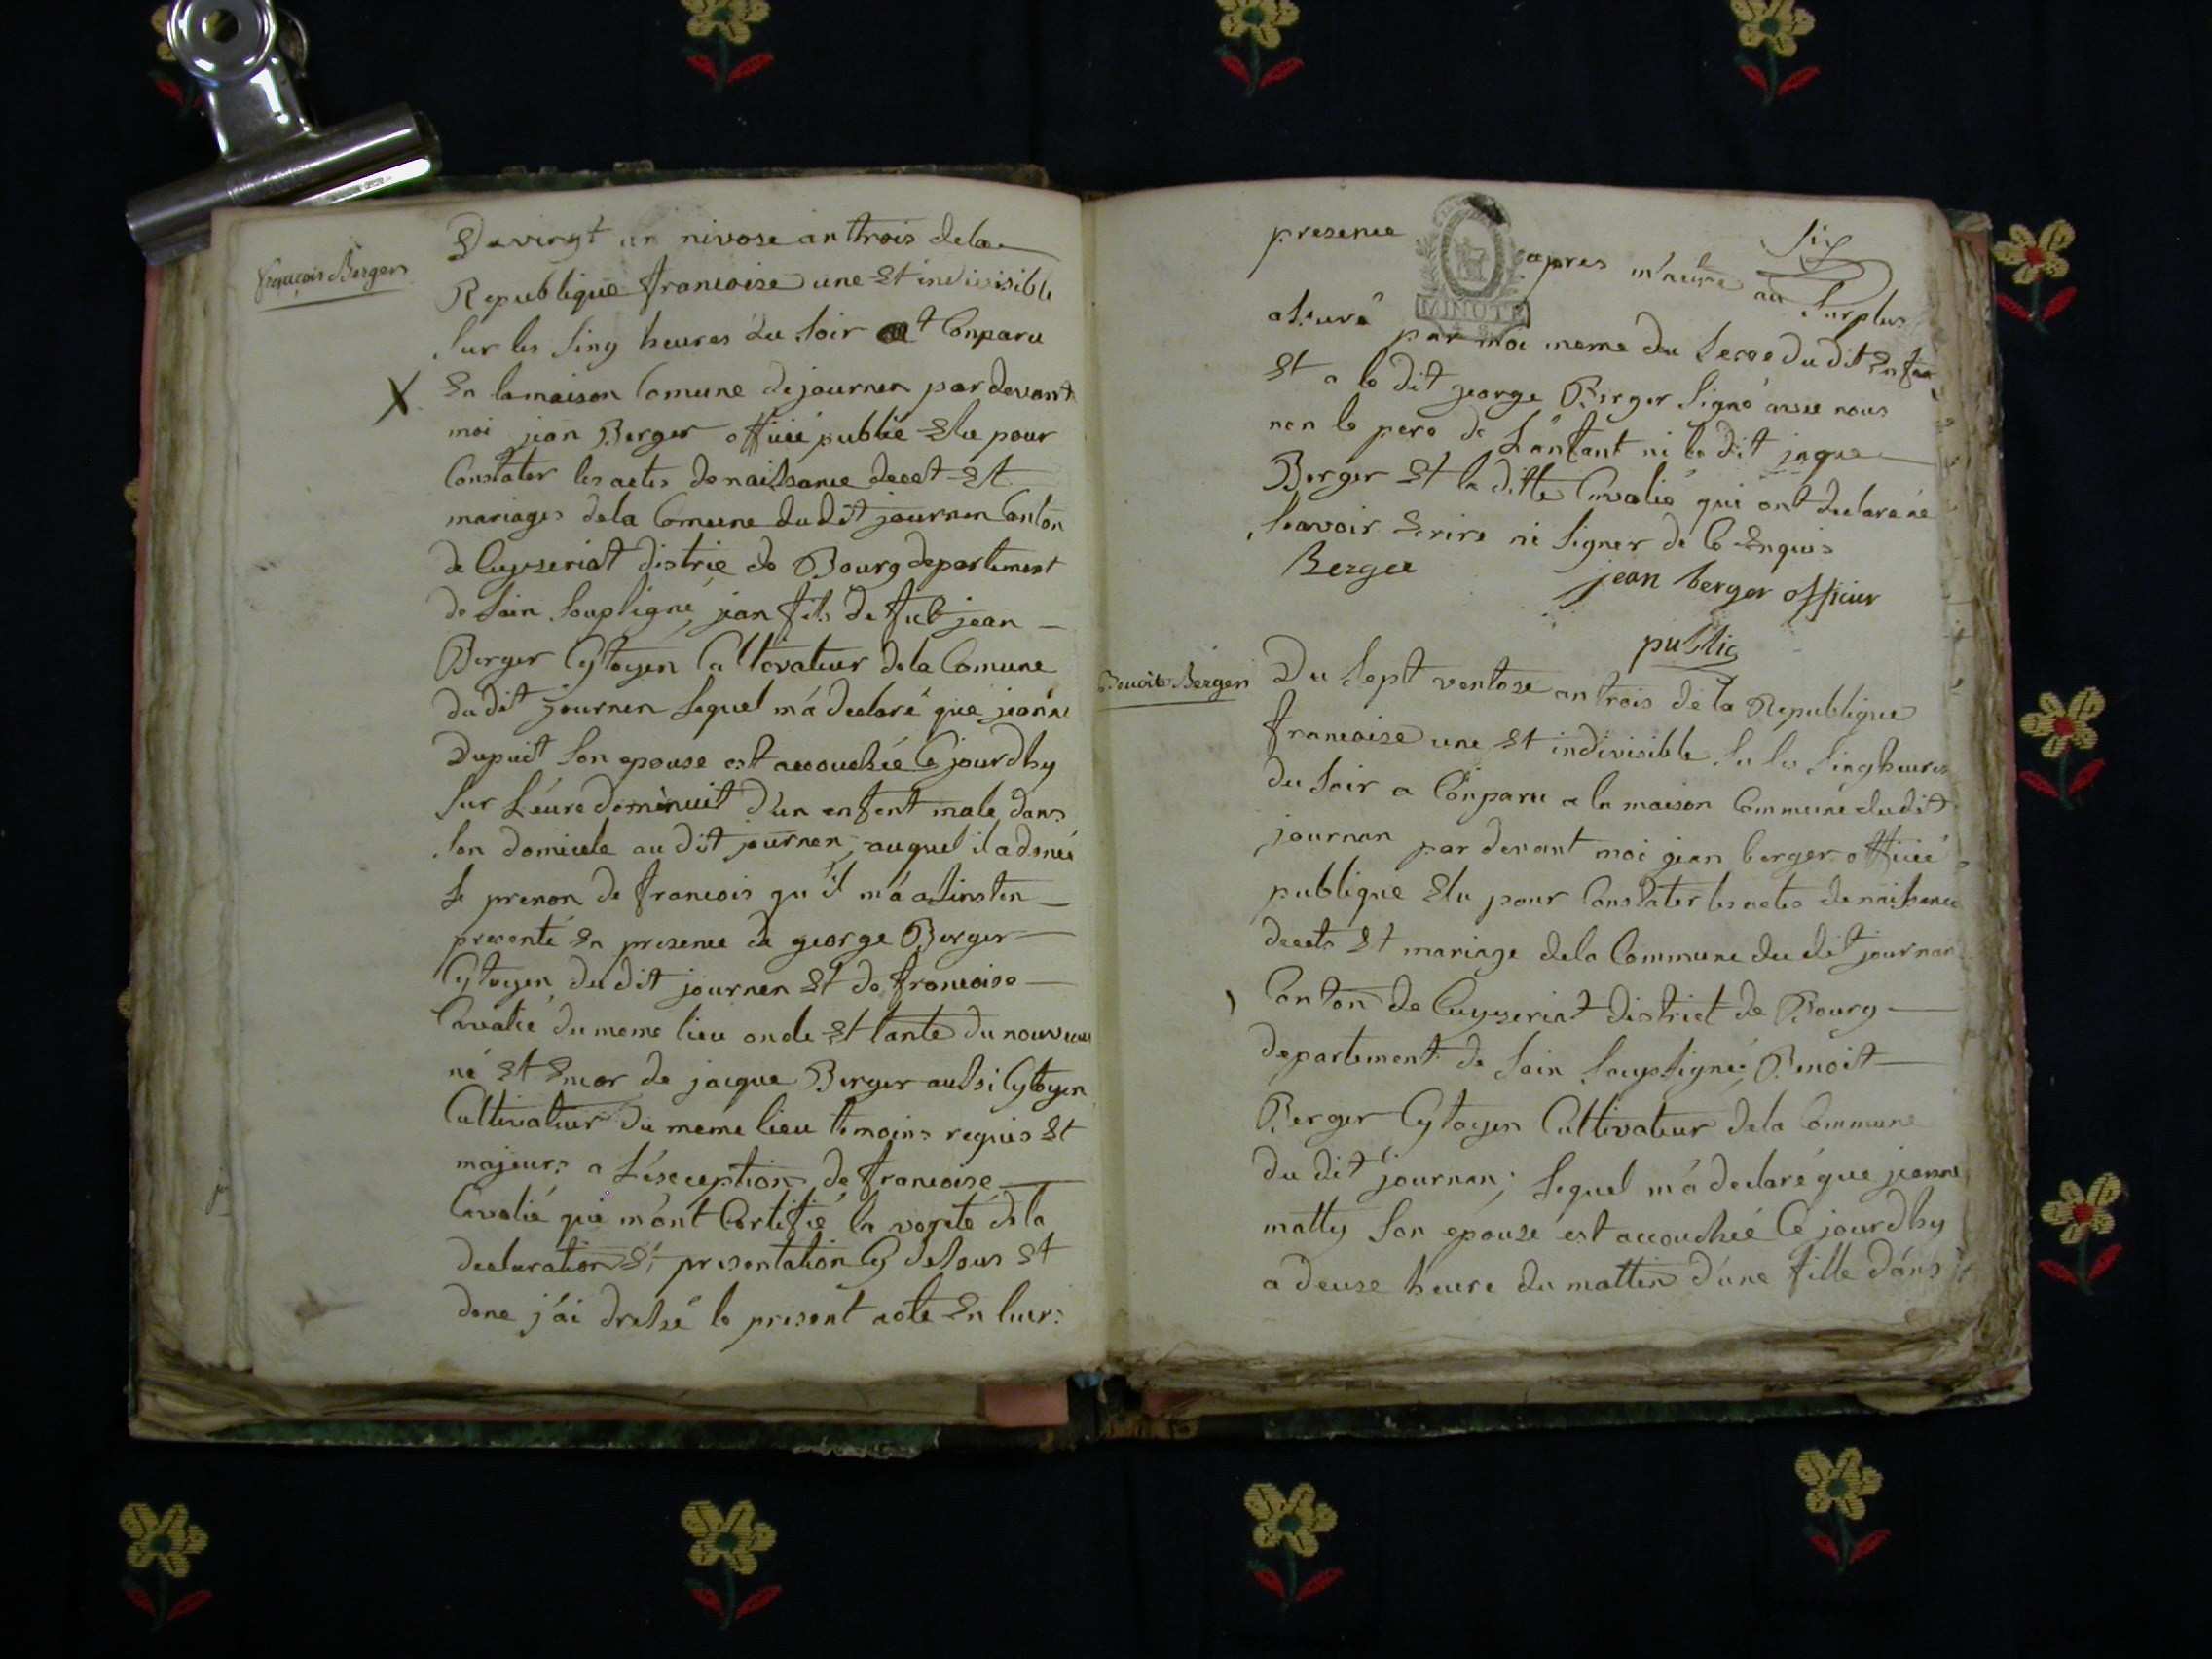 françois Berger
Du vingt un nivose an trois de la
Republique francoise une Et indivisible
Sur les Sinq heures du Soir Conparu
X En la maison Comune de journen par devant
moi jean Berger officié publié Elu pour
Constater les actes de naissance decet Et
mariages de la Comune du dit journen Canton
de Ceyzeriat distric de Bourg departement
de Lain Soupligné, jean fils de fut jean
Berger Cytoyen Caltevateur de la Comune
du dit journen Lequel m'á declaré que jeanne
Dupuit Son epouse est accouchée Ce jourdhy
Sur L'éure de minuit D'un enfent male dans
Son domicele au dit journen, auquel il a doneé
Le prenon de francois qu'il m'á a Linsten
presenté En presence de george Berger
Cytoyen du dit journen Et de francoise
Cavalié du meme lieu oncle Et tante du nouveau
né Et Encor de jacque Berger aussi Cytoyen
Cultivateur Du méme lieu temoins requis Et
majeurs a L'éseception de francoise
Cavalié que m'ont Certifié la verité de la
declaration Et presentation Cy desous Et
done j'ai dressé le present acte En leurs
presence
MINUTE
apres
Six
au Surplus
assuré par moi meme du Sexe du dit Enfan
Et a le dit george Berger Signé avec nous
non le pere de L'anfant ni le dit jaque
Berger Et la ditte Cavalié qui ont declaré né
Scavoir Ecrire ni Signer de Ce Enquis
Berger
jean berger officier
public
Benoite Berger
Du Sept ventose an trois de la Republique
francoise une Et indivisible Su les Sinq heures
du Soir a Conparu a la maison Commune du dit
journan par devant moi jean berger officié
publique Elu pour Constater les actes de naissance
decets Et mariage de la Commune du dit journan
Canton de Ceyzeriat District de Bourg
departement de Lain Soupsigné, Benoit
Berger Cytoyen Cultivateur de la Commune
du dit journan; Lequel m'á declaré que jeanne
matty Son epouse est accouchée Ce jourdhy
a deuse heure du mattin d'une fille dans